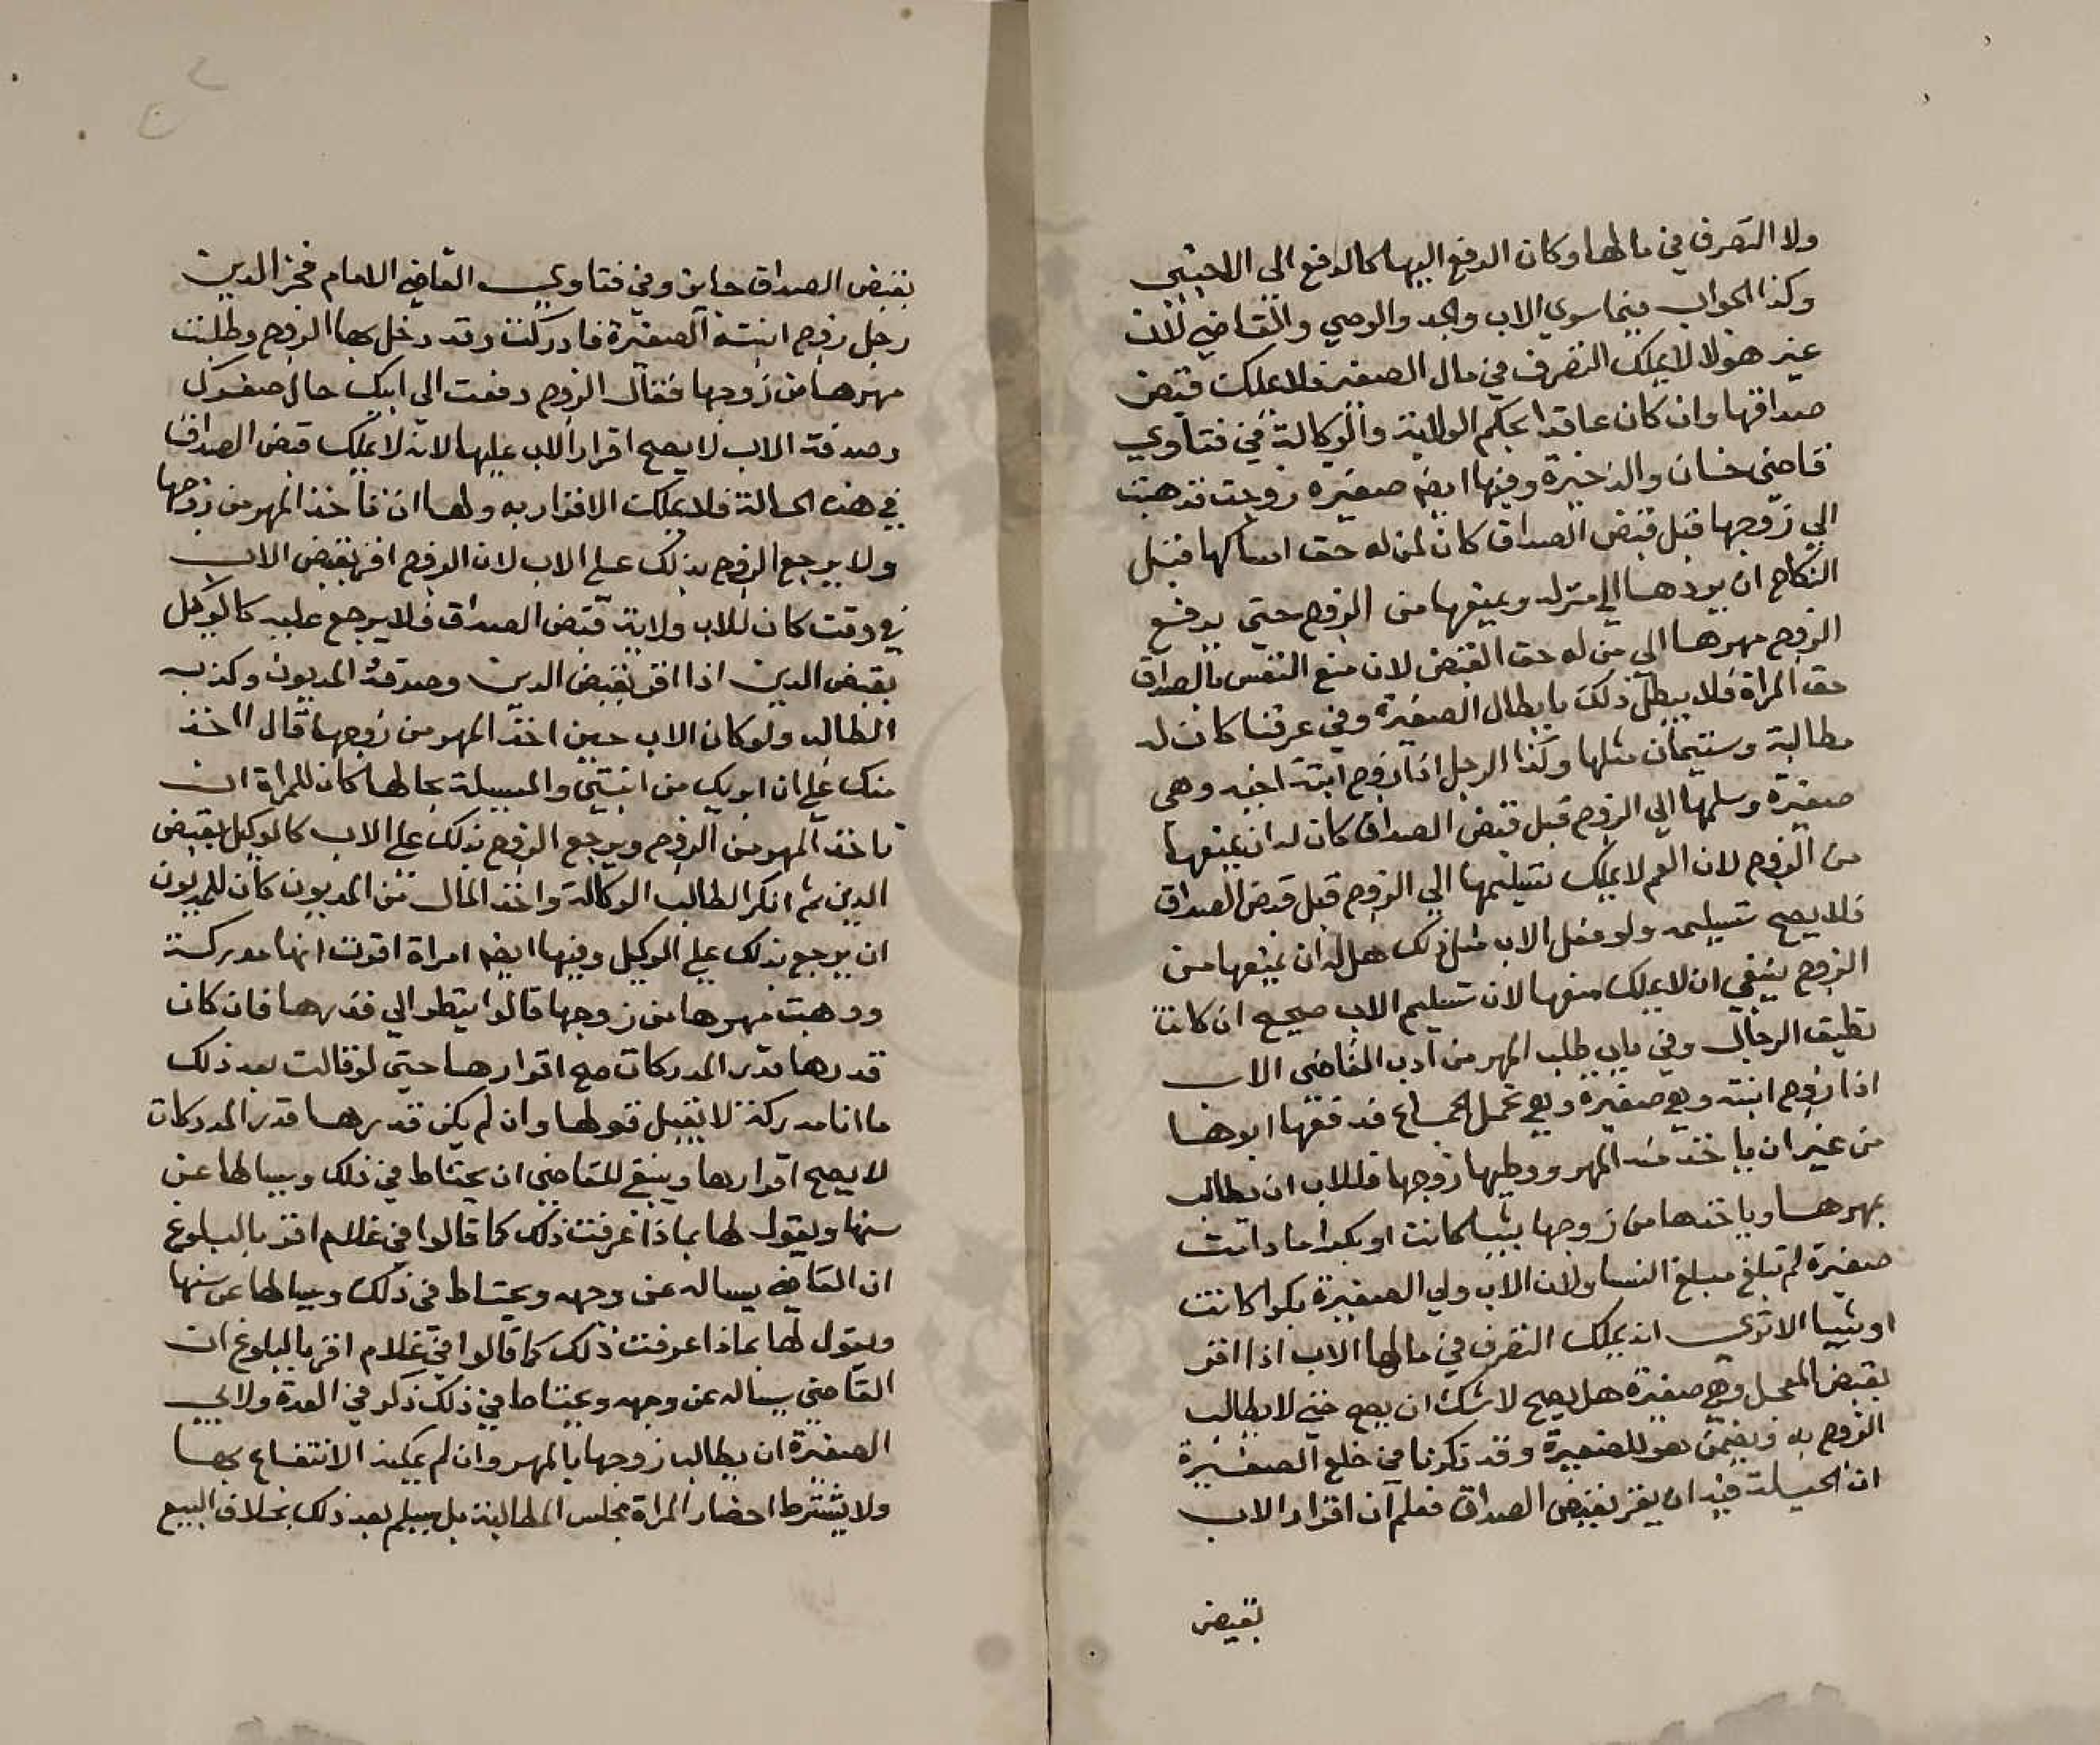 ولا التصرف في مالها وكان الدفع اليها كالدفع الي الاجنبي
وكذا الجواب فيما سوي الاب والجد والوصي والقاضي لان
غير هولا لا يملك التصرف في مال الصغير فلا يملك قبض
صداقها وان كان عاقدا بحكم الولاية والوكالة في فتاوي
قاضي خان والذخيرة وفيها ايضه صغيرة زوجت فذهبت
الي زوجها قبل قبض الصداق كان لمن له حق امساكها قبل
النكاح ان يردها الي منزله ويمنعها من الزوج حتي يدفع
الزوج مهرها الي من له حق القبض لان منع النفس بالصداق
حق المراة فلا يبطل ذلك بابطال الصغيرة وفي عرفنا كان له
مطالبة مثلها وكذا الرجل اذا زوج ابنة اخيه وهي
صغيرة وسلمها الي الزوج قبل قبض الصداق كان له ان يمنعها
من الزوج لان العم لا يملك تسليمها الي الزوج قبل قبض الصداق
فلا يصح تسليمه ولو فعل الاب مثل ذلك هل له ان يمنعها من
الزوج ينبغي ان لا يملك منعها لان تسليم الاب صحيح ان كانت
تطيق الرجال وفي باب طلب المهر من ادب القاضي الاب
اذا زوج ابنته وهي صغيرة وهي تحمل الجماع فدفعها ابوها
من غير ان ياخذ منه المهر ووطيها زوجها فللاب ان يطالب
بمهرها وياخذها من زوجها ثيبا كانت او بكرا ما دامت
صغيرة لم تبلغ مبلغ النسا ولان الاب ولي الصغيرة بكرا كانت
او ثيبا الا تري انه يملك التصرف في مالها الاب اذا اقر
بقبض المعجل وهي صغيرة هل يصح لا شك ان يصح حتي لا يطالب
الزوج به ويضمن هو للصغيرة وقد ذكرنا في خلع الصغيرة
ان الحيلة فيه ان يقر بقبض الصداق فعلم ان اقرار الاب
بقبض
بقبض الصداق جايز وفي فتاوي القاضي الامام فخر الدين
رجل زوج ابنته الصغيرة فادركت وقد دخل بها الزوج وطلبت
مهرها من زوجها فقال الزوج دفعت الي ابيك حال صغرك
وصدقه الاب لا يصح اقرار الاب عليها لانه لا يملك قبض الصداق
في هذه الحالة فلا يملك الاقرار به ولها ان تاخذ المهر من زوجها
ولا يرجع الزوج بذلك علي الاب لان الزوج اقر بقبض الاب
في وقت كان للاب ولاية قبض الصداق فلا يرجع عليه كالوكيل
بقبض الدين اذا اقر بقبض الدين وصدقه المديون وكذبه
الطالب ولو كان الاب حين اخذ المهر من زوجها قال اخذ
منك علي ان ابريك من ابنتي والمسيلة بحالها كان للمراة ان
تاخذ المهر من الزوج ويرجع الزوج بذلك علي الاب كالوكيل بقبض
الدين ثم انكر الطالب الوكالة واخذ المال من المديون كان للمديون
ان يرجع بذلك علي الوكيل وفيها ايضه امراة اقرت انها مدركة
ووهبت مهرها من زوجها قالوا ينظر الي قدرها فان كان
قدرها قدر المدركات صح اقرارها حتي لو قالت بعد ذلك
ما انا مدركة لا تقبل قولها وان لم يكن قدرها قدر المدركات
لا يصح اقرارها وينبغي للقاضي ان يحتاط في ذلك ويسالها عن
سنها ويقول لها بماذا عرفت ذلك كما قالوا في غلام اقر بالبلوغ
ان القاضي يساله عن وجهه ويحتاط في ذلك ويسالها عن سنها
ويقول لها بماذا عرفت ذلك كما قالوا في غلام اقر بالبلوغ ان
القاضي يساله عن وجهه ويحتاط في ذلك ذكر في العدة ولابي
الصغيرة ان يطالب زوجها بالمهر وان لم يمكنه الانتفاع بها
ولا يشترط احضار المراة مجلس المطالبة بل يسلم بعد ذلك بخلاف البيع